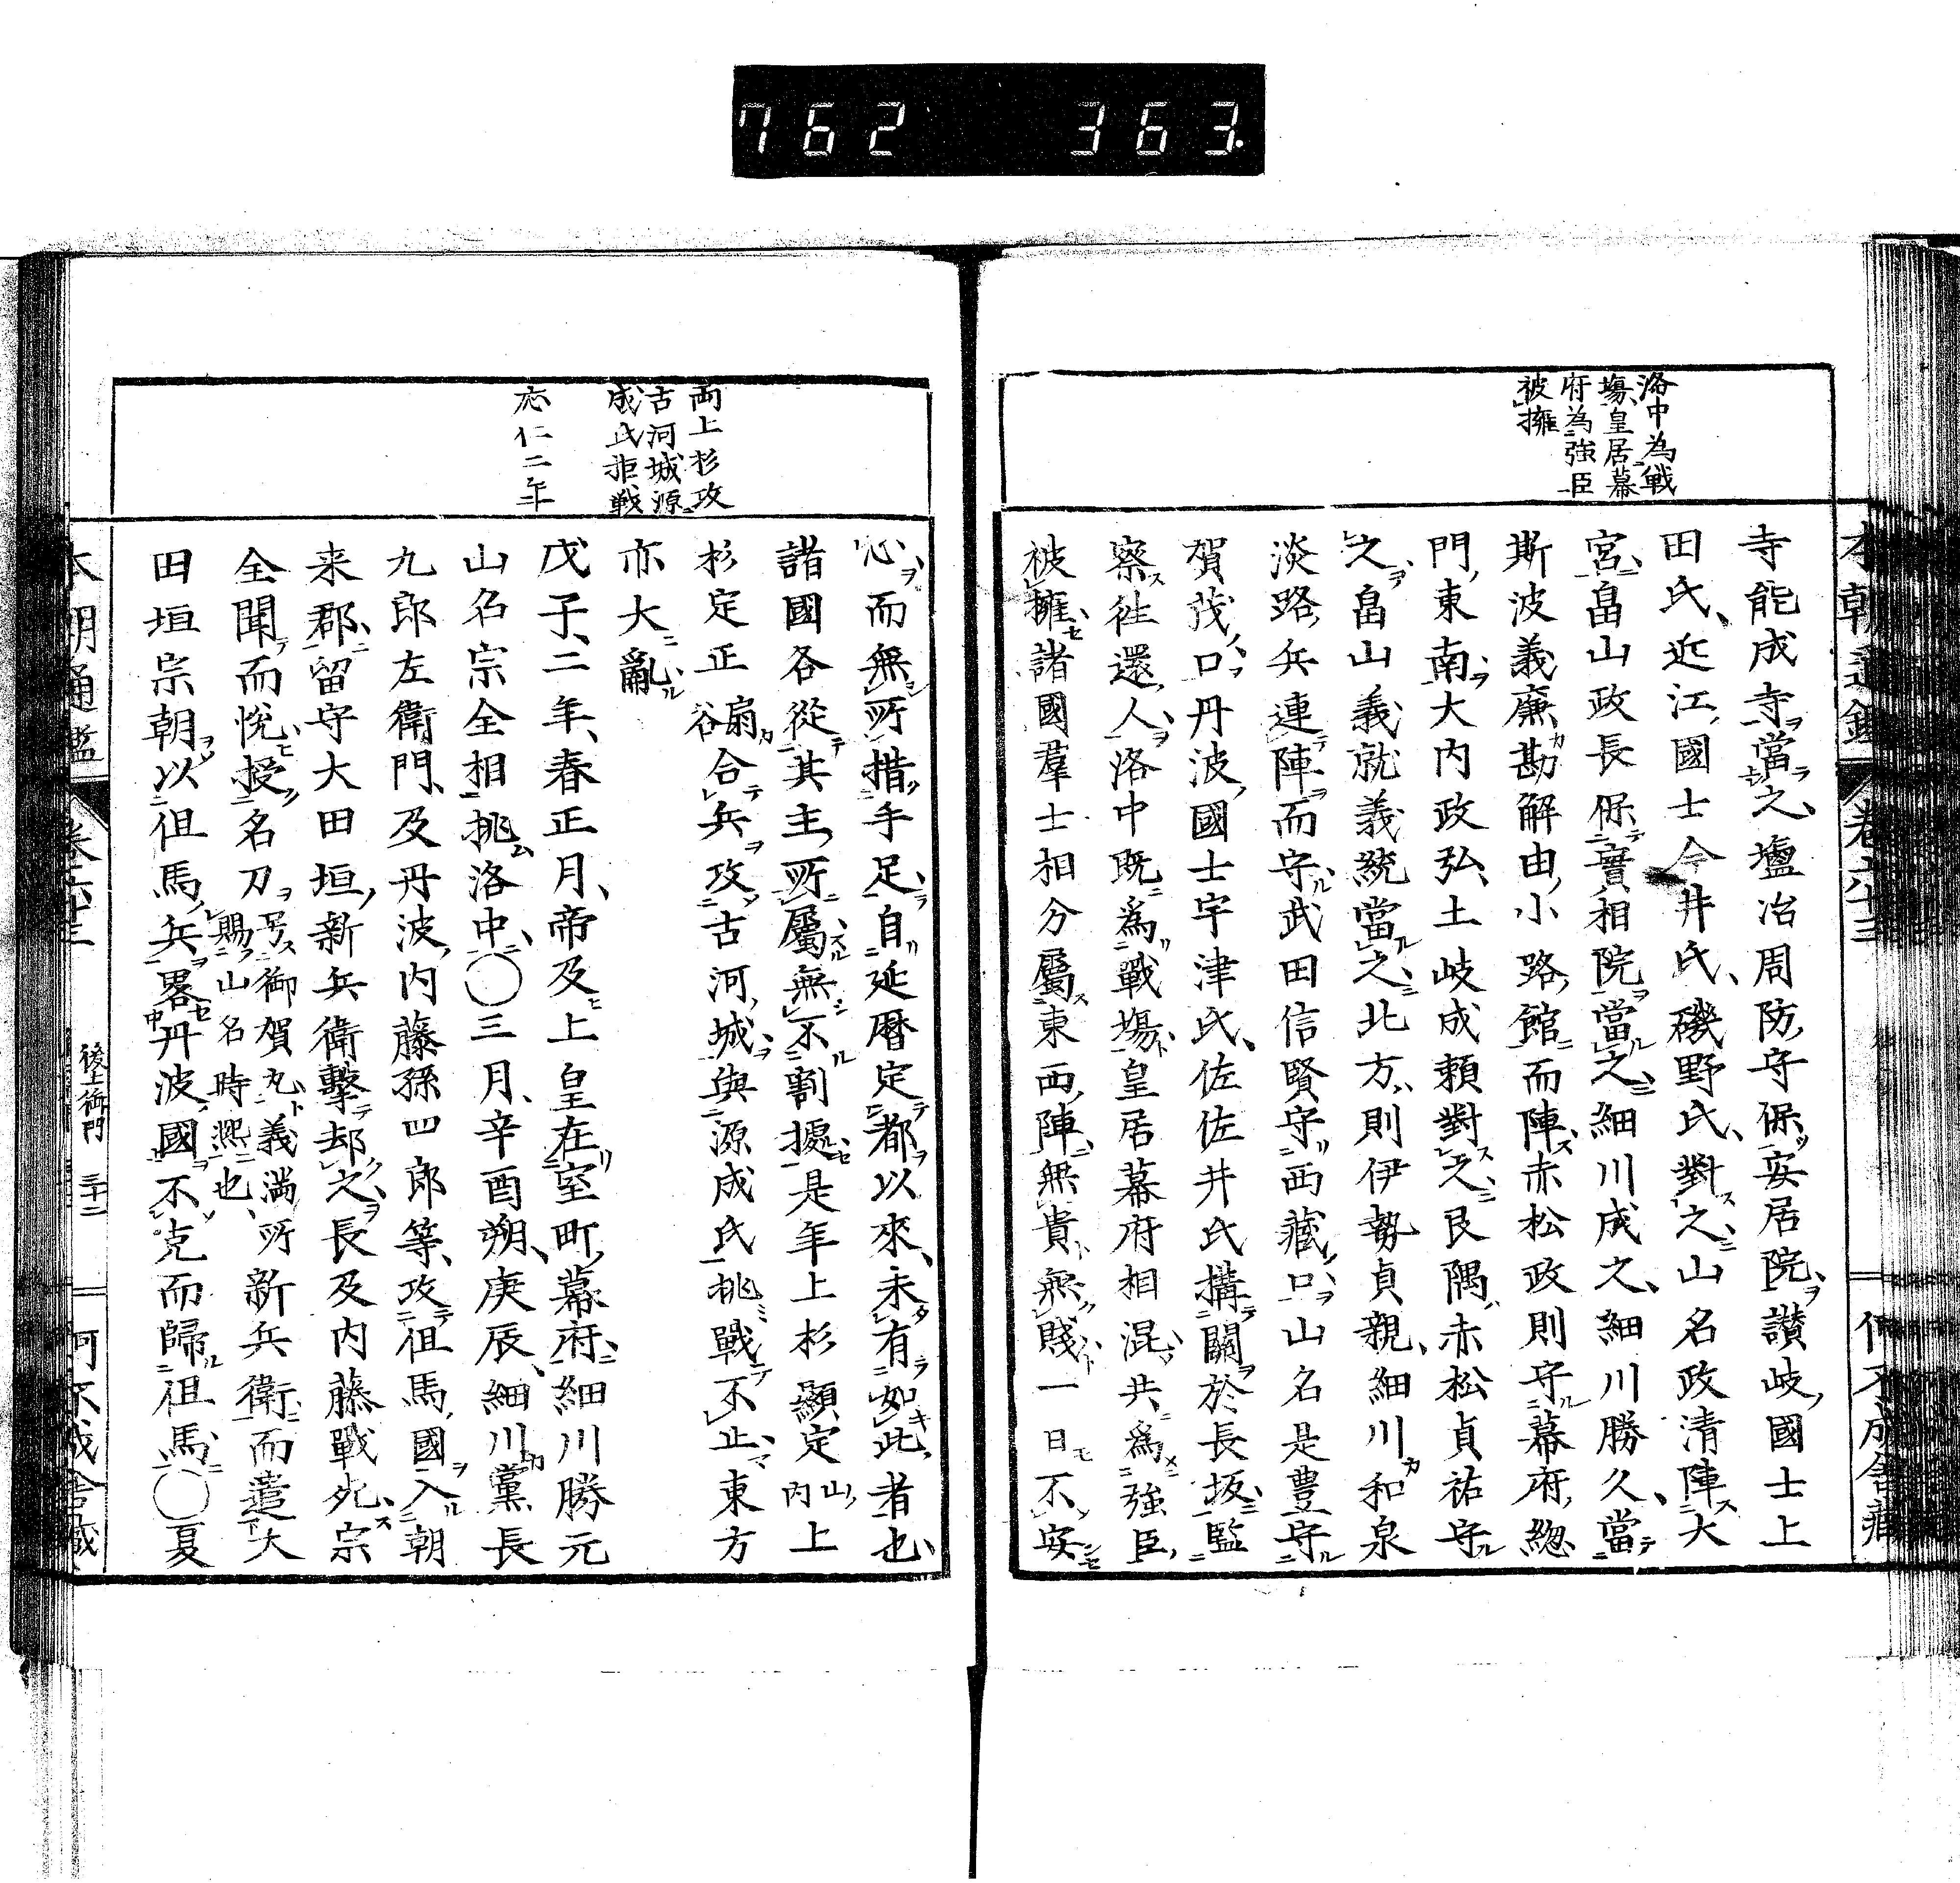 762 363.
洛中為戦
塲皇居幕
府為強臣
被擁
寺能成寺當之壚冶周防守保安居院讃岐國士上
田氏近江國士今井氏磯野氏對之山名政清陣大
宮畠山政長保實相院當之細川成之細川勝久當
斯波義廉勘解由小路館而陣赤松政則守幕府總
門東南大内政弘土岐成頼對之艮隅赤松貞祐守
之畠山義就義統當之北方則伊勢貞親細川和泉
淡路兵連陣而守武田信賢守西藏口山名是豊守
賀茂口丹波國士宇津氏佐佐井氏構關於長坂監
察徃還人洛中既爲戰塲皇居幕府相混共爲強臣
被擁諸國羣士相分屬東西陣無貴無賤一日不安
両上杉攻
古河城源
成氏拒戦
応仁二年
心而無所措手足自延暦定都以來未有如此者也
諸國各從其主所屬無不割據是年上杉顯定山内上
杉定正扇谷合兵攻古河城與源成氏挑戰不止東方
亦大亂
戊子二年春正月帝及上皇在室町幕府細川勝元
山名宗全相挑洛中〇三月辛酉朔庚辰細川黨長
九郎左衛門及丹波内藤孫四郎等攻徂馬國入朝
来郡留守大田垣新兵衛擊却之長及内藤戰死宗
全聞而悅授名刀号御賀丸義満所賜山名時熙也新兵衛而遣大
田垣宗朝以徂馬兵畧丹波國不克而歸徂馬〇夏
本朝通鑑 卷六十三 後土御門 三十二